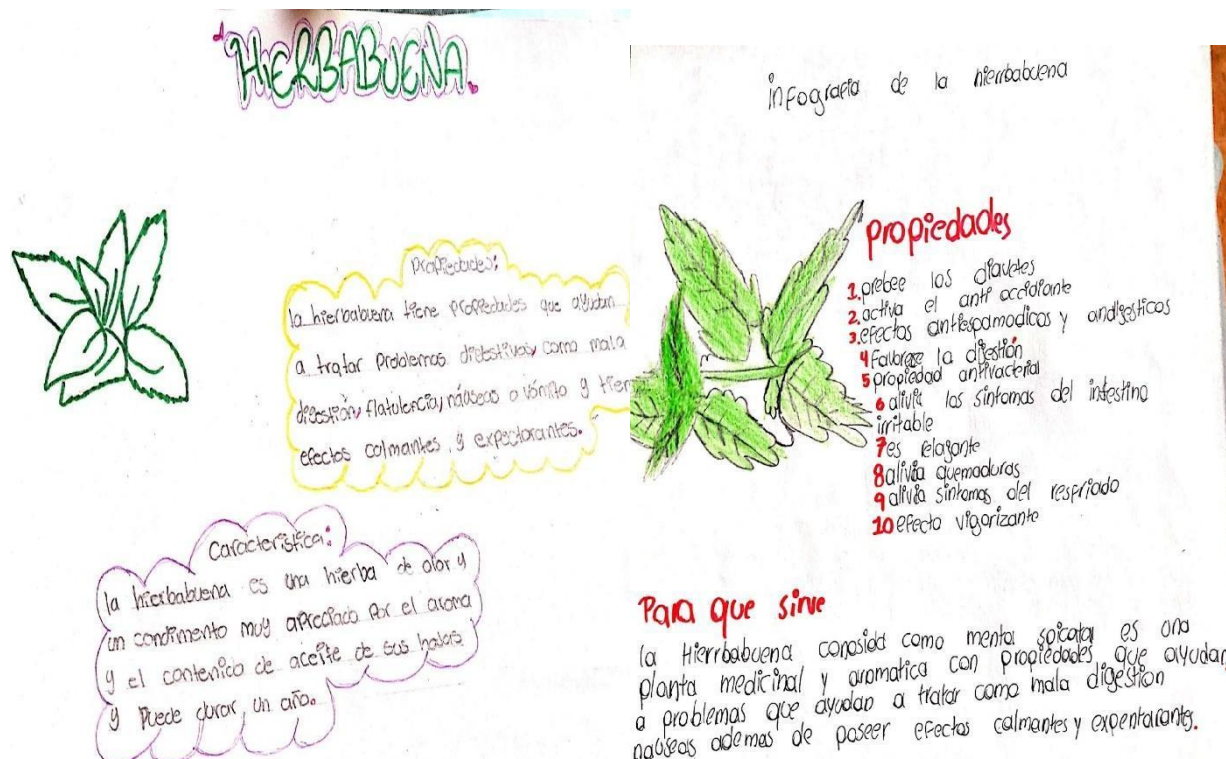 HIERBABUENA.
Propiedades:
la hierbabuena tiene propiedades que ayudan
a tratar problemas digestivos, como mala
digestión, flatulencia, náuseas o vómito y tien
efectos calmantes, y expectorantes.
Característica:
la hierbabuena es una hierba de olor y
un condimento muy apreciado por el aroma
y el contenido de aceite de sus hojas
y puede durar un año.
infografia de la hierrbabuena
propiedades
1. prebee los diavetes
2. activa el anti occidiante
3. efectos antiespamodicos y andigesticos
4 favoreze la digestión
5 propiedad antivacterial
6 alivia los sintomas del intestino
irritable
7 es relajante
8 alivia quemaduras
9 alivia sintomas del resfriado
10 efecto vigorizante
Para que sirve
la Hierrbabuena conosida como menta spicata es una
planta medicinal y aromatica con propiedades que ayudan
a problemas que ayudan a tratar como mala digestión
nauseas ademas de poseer efectos calmantes y expentorantes.